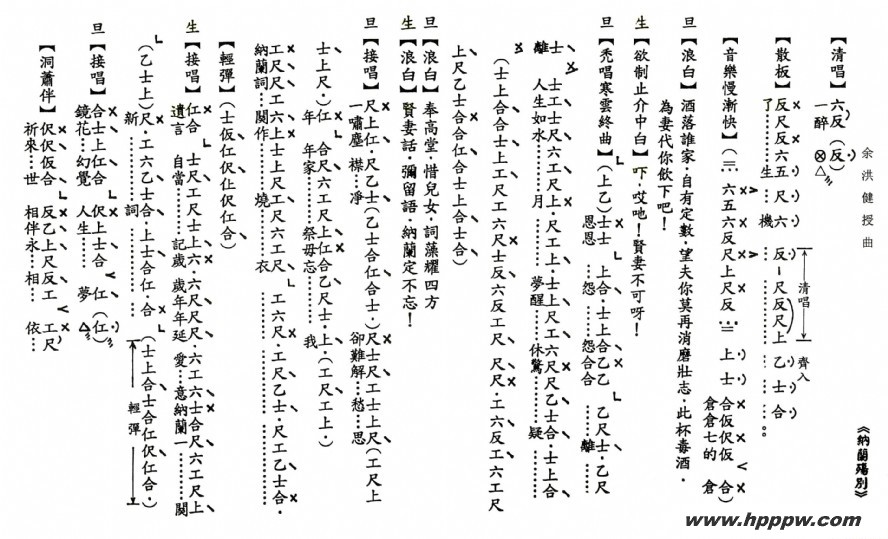 《納蘭殤別》
余洪健授曲
【清唱】六反（反）
一醉
【散板】反尺反六五 尺六 反 尺反尺上 乙士合
了………生…機………。
清唱 齊入
【音樂慢漸快】（三 六五六反尺上尺反 三 上 士 合仮伬仮 合）
倉倉七的 倉
旦【浪白】酒落誰家，自有定數，望夫你莫再消磨壯志，此杯毒酒，
為妻代你飲下吧！
生【欲制止介中白】吓，哎吔！賢妻不可呀！
旦【禿唱寒雲終曲】（上乙）士士 上合·士上合乙乙 乙尺士·乙尺
恩恩 怨……怨合合 離
士 士工士尺六工尺上·尺工上·士上尺工六尺尺乙士合·士上合
離 人生如水……月 夢醒……休驚……疑
（士上合合士上尺工尺工六尺士反六反工尺 尺尺·工六反工六工尺
上尺乙士合合仁合士上合士合）
旦【浪白】奉高堂，惜兒女，詞藻耀四方
生【浪白】賢妻話，彌留語，納蘭定不忘！
旦【接唱】尺上仁·尺乙士（乙士合仁合士·）尺士尺工士上尺（工尺上
一嘯塵 襟…淨 卻難解…愁…思
士上尺·）仁 合尺六工尺上仁合乙尺士·上·（工尺工上·）
年 年家……祭毋忘……… 我
工尺尺工六上士上尺工尺六工尺 工六尺·工尺乙士·尺工乙士合·
納蘭詞…閱作………燒………衣
【輕彈】（士仮仁伬仩伬仁合）
生【接唱】仁合 士尺工尺士上六·六尺尺尺·六工六士合尺六工尺上
遺言 自當………記歲 歲年年延 愛…意納蘭一………闋
（乙士上）尺·工六乙士合·上士合仁·合 （士上合士合仁伬仁合·）
新………詞 輕彈
旦【接唱】合士上仁合 伬上士合 仁（仁）
鏡花…幻覺 人生…… 夢
【洞蕭伴】伬伬仮合 反乙上尺反工 工尺
祈來…世 相伴永…相… 依…
www.hpppw.com